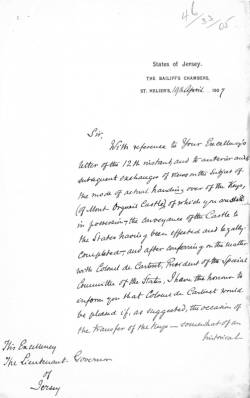 46/33/05
States of Jersey.
THE BAILIFF'S CHAMBERS,
ST. HELIER'S, 19th April 1907
Sir,
With reference to Your Excellency's
letter of the 12th instant, and to anterior and
subsequent exchanges of views on the subject of
the mode of actual handing over of the Keys,
(of Mont Orgueil Castle), of which you are still
in possession, the conveyance of the Castle to
the States having been effected and legally
completed, and after conferring on the matter
with Colonel de Carteret, President of the Special
Committee of the States, I have the honour to
inform you that Colonel de Carteret would
be pleased if, as suggested, the occasion of
the transfer of the Keys — somewhat of an
historical
His Excellency
The Lieutenant Governor
of
Jersey